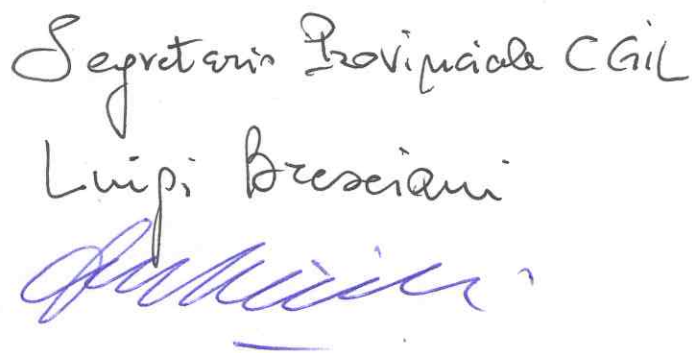 Segretario Provinciale CGIL
Luigi Bresciani